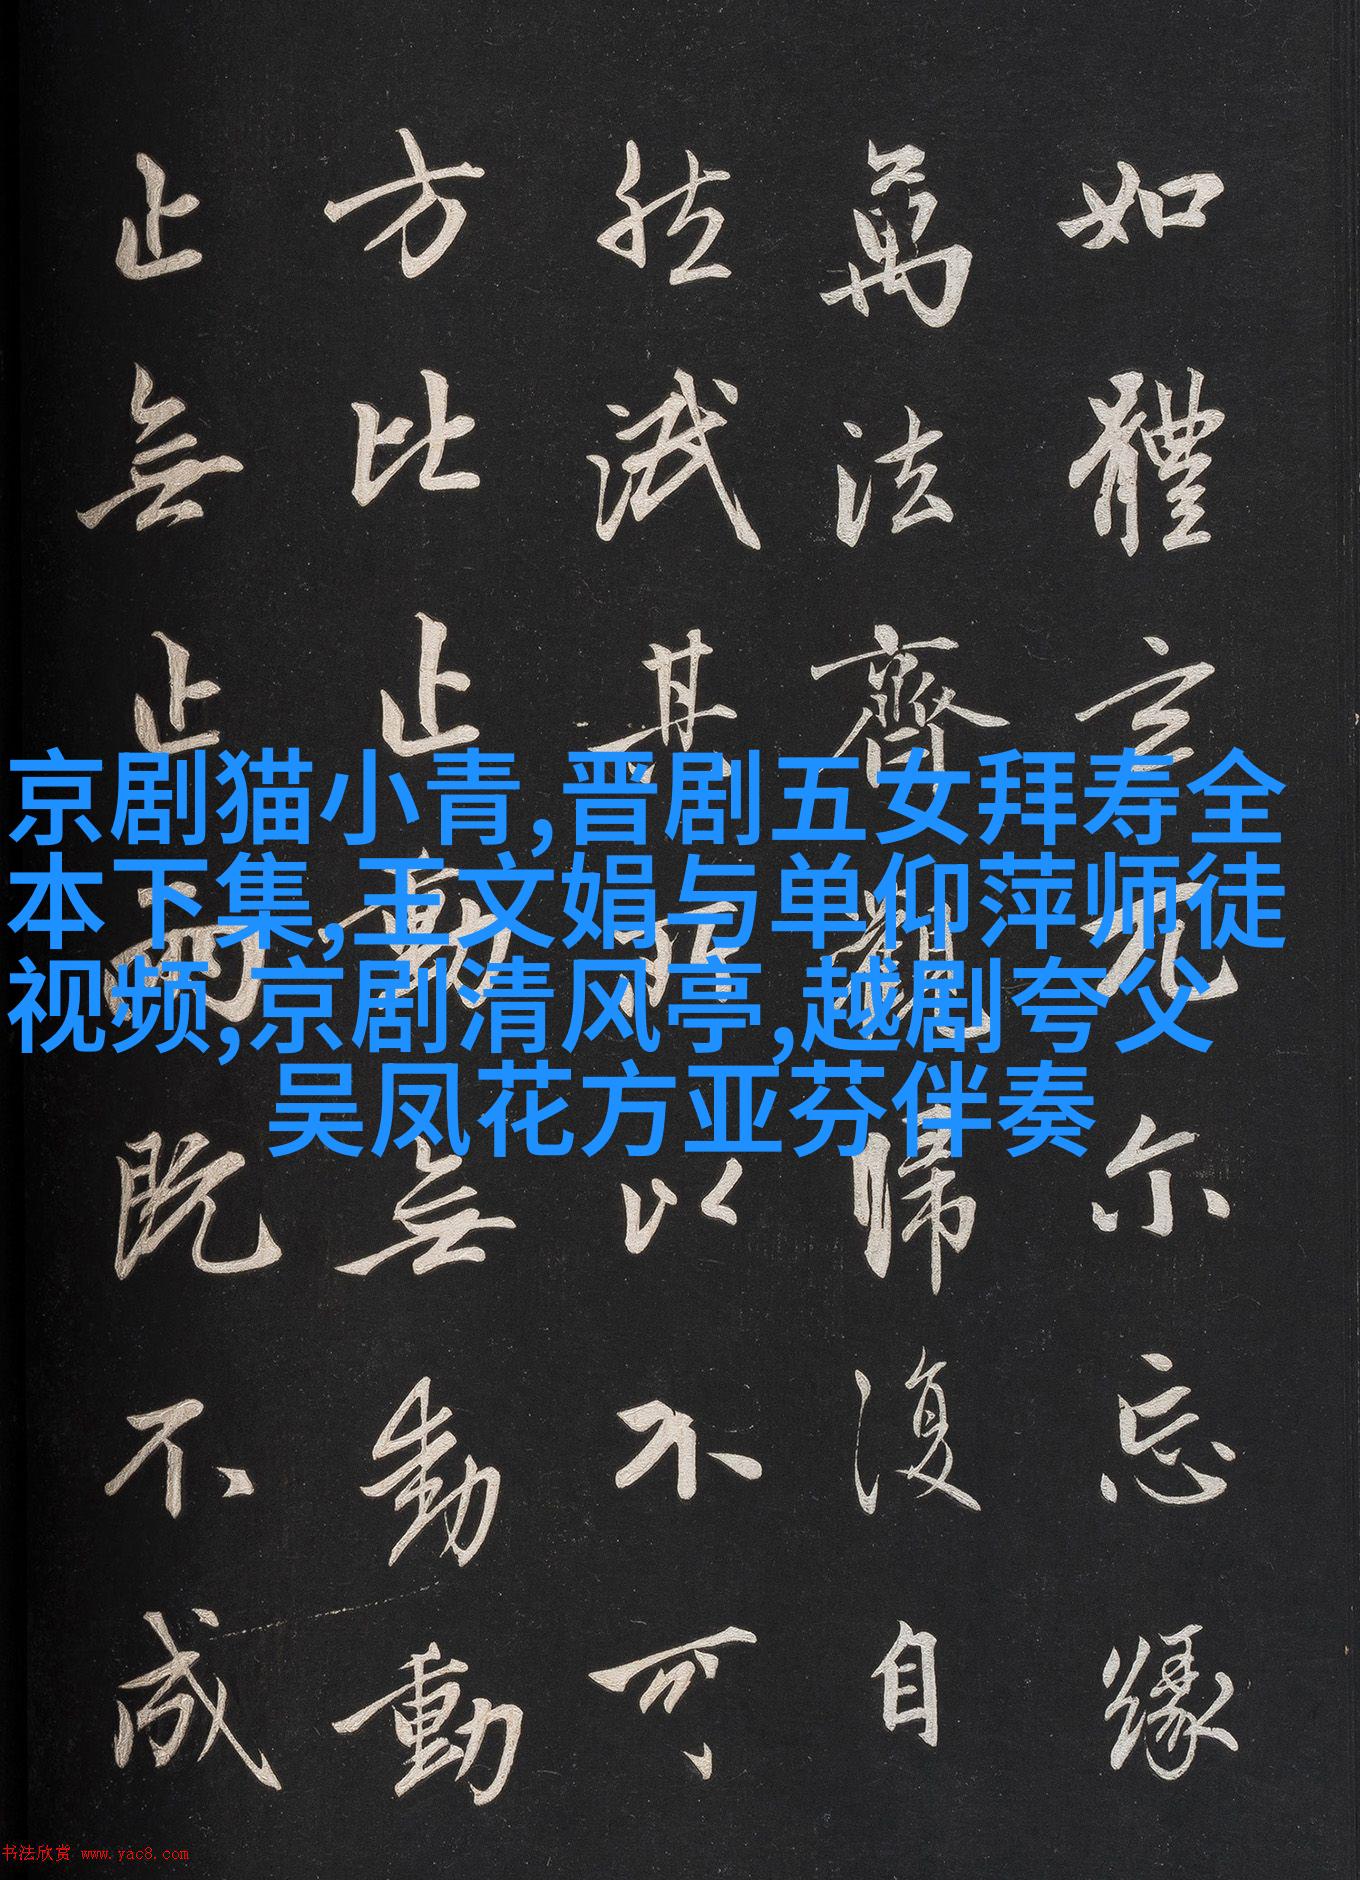 如體玄兀尔忘緣
萬法齊觀歸復自
然泯其所以不可
方比止動無動動
止無止兩既不成
京剧猫小青,晋剧五女拜寿全
本下集,王文娟与单仰萍师徒
视频,京剧清风亭,越剧夸父
吴凤花方亚芬伴奏
书法欣赏 www.yac8.com